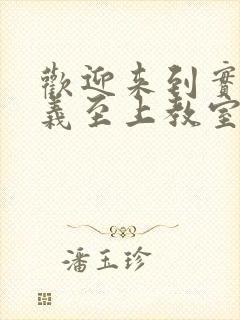 歡迎来到實
義至上教室
潘玉珍